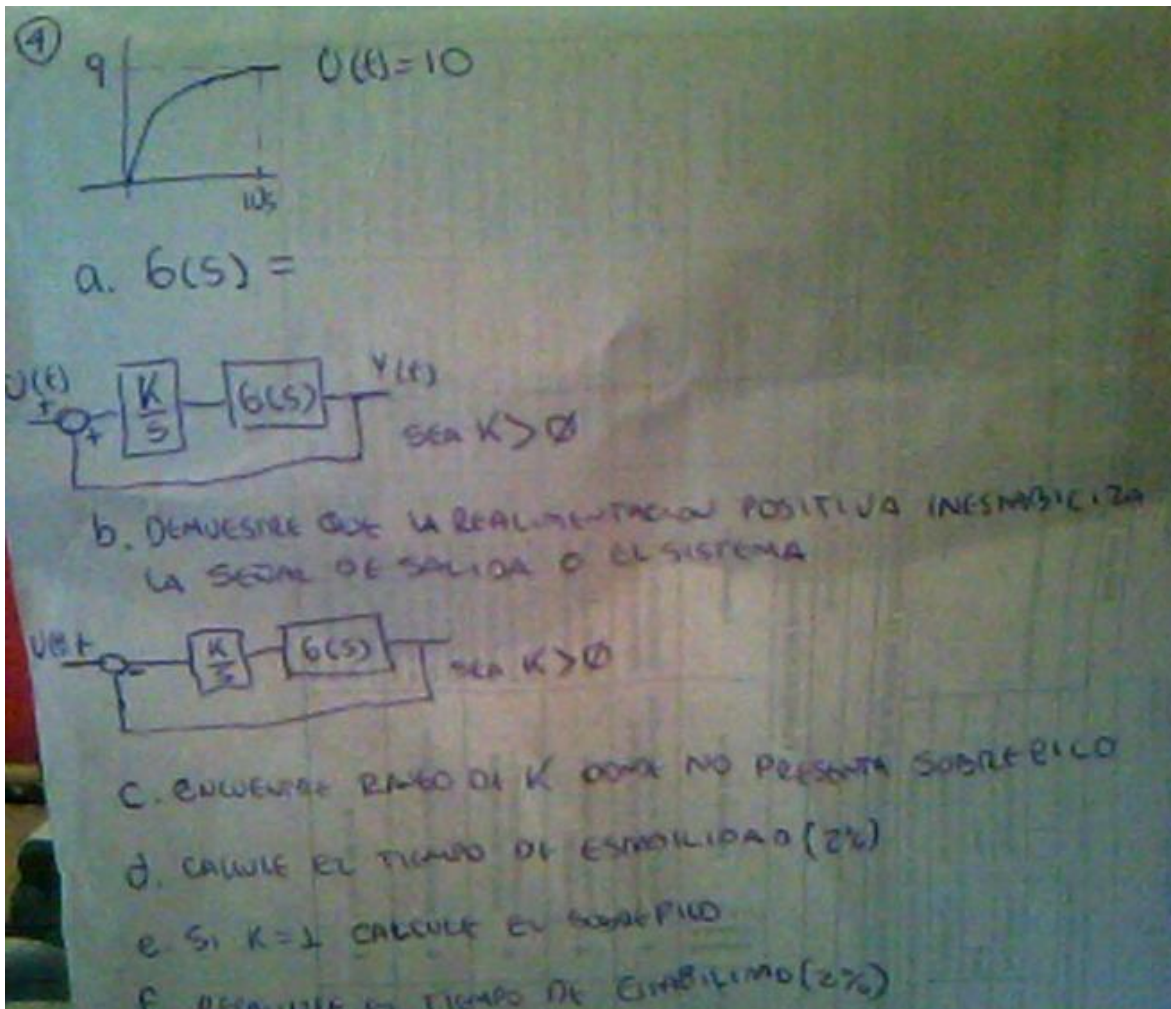 4
9
U(t)=10
10s
a. G(s) =
U(t)
+
+
K
s
G(s)
Y(t)
SEA K>Ø
b. DEMUESTRE QUE LA REALIMENTACION POSITIVA INESTABILIZA
LA SEÑAL DE SALIDA O EL SISTEMA
U(t) +
-
K
s
G(s)
SEA K>Ø
C. ENCUENTRE RANGO DE K DONDE NO PRESENTA SOBREPICO
d. CALCULE EL TIEMPO DE ESTABILIDAD (2%)
e SI K=1 CALCULE EL SOBREPICO
f TIEMPO DE ESTABILIDAD (2%)